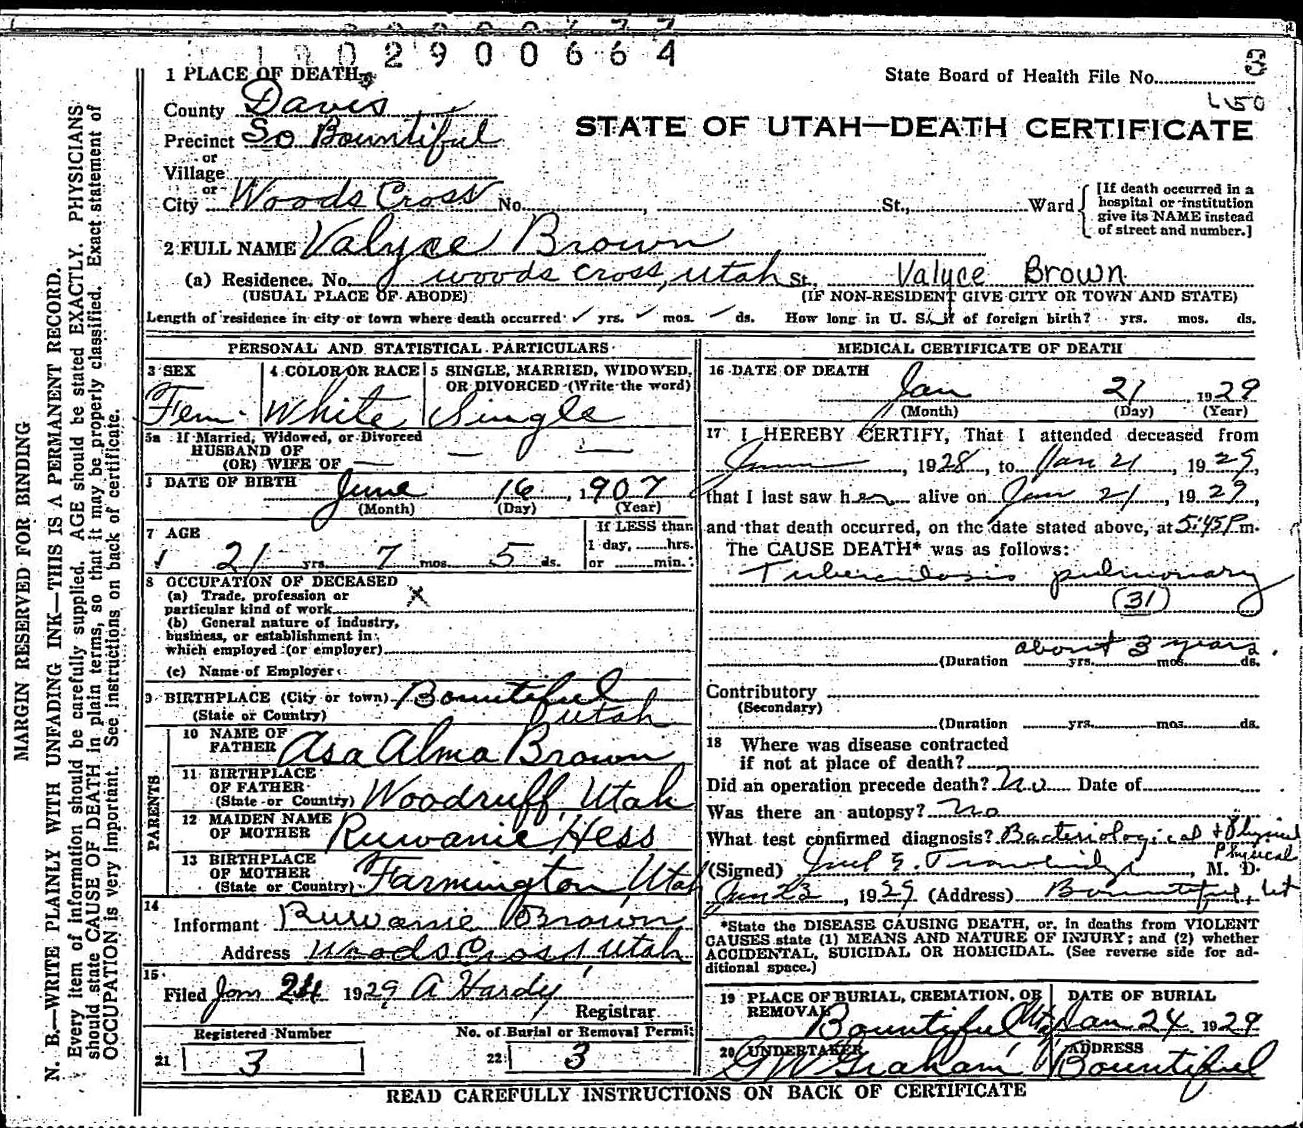 1 0 0 2 9 0 0 6 6 4
3
1 PLACE OF DEATH
State Board of Health File No.
County Davis
Precinct So Bountiful
STATE OF UTAH—DEATH CERTIFICATE
or
Village
or
City Woods Cross No. , St., Ward
[If death occurred in a
hospital or institution
give its NAME instead
of street and number.]
2 FULL NAME Valyce Brown
(a) Residence. No. woods cross, utah St., Valyce Brown
(USUAL PLACE OF ABODE) (IF NON-RESIDENT GIVE CITY OR TOWN AND STATE)
Length of residence in city or town where death occurred ✓ yrs. ✓ mos. ✓ ds. How long in U. S. if of foreign birth? yrs. mos. ds.
PERSONAL AND STATISTICAL PARTICULARS
3 SEX
Fem.
4 COLOR OR RACE
White
5 SINGLE, MARRIED, WIDOWED,
OR DIVORCED (Write the word)
Single
5a If Married, Widowed, or Divorced
HUSBAND OF
(OR) WIFE OF — — —
DATE OF BIRTH June 16, 1907
(Month) (Day) (Year)
7 AGE
21 yrs. 7 mos. 5 ds.
If LESS than
1 day, hrs.
or min.
8 OCCUPATION OF DECEASED
(a) Trade, profession or
particular kind of work X
(b) General nature of industry,
business, or establishment in
which employed (or employer)
(c) Name of Employer
9 BIRTHPLACE (City or town) Bountiful
(State or Country) Utah
PARENTS
10 NAME OF
FATHER Asa Alma Brown
11 BIRTHPLACE
OF FATHER
(State or Country) Woodruff, Utah
12 MAIDEN NAME
OF MOTHER Ruwanie Hess
13 BIRTHPLACE
OF MOTHER
(State or Country) Farmington Utah
14
Informant Ruwanie Brown
Address Woods Cross, Utah
15
Filed Jan 24 1929 A Hardy
Registrar.
Registered Number
21 3
No. of Burial or Removal Permit
22 3
MEDICAL CERTIFICATE OF DEATH
16 DATE OF DEATH
Jan 21 1929
(Month) (Day) (Year)
17 I HEREBY CERTIFY, That I attended deceased from
, 1928, to Jan 21, 1929,
that I last saw her alive on Jan 21, 1929,
and that death occurred, on the date stated above, at 5:45 P m.
The CAUSE DEATH* was as follows:
Tuberculosis pulmonary
(31)
about 3 years.
(Duration yrs. mos. ds.
Contributory
(Secondary)
(Duration yrs. mos. ds.
18 Where was disease contracted
if not at place of death?
Did an operation precede death? No Date of
Was there an autopsy? No
What test confirmed diagnosis? Bacteriological + Physical
Physical
(Signed) , M. D.
Jan 23, 1929 (Address) Bountiful, Ut
*State the DISEASE CAUSING DEATH, or, in deaths from VIOLENT
CAUSES state (1) MEANS AND NATURE OF INJURY; and (2) whether
ACCIDENTAL, SUICIDAL OR HOMICIDAL. (See reverse side for ad-
ditional space.)
19 PLACE OF BURIAL, CREMATION, OR
REMOVAL Bountiful Utah
DATE OF BURIAL
Jan 24 1929
20 UNDERTAKER
G W Graham
ADDRESS
Bountiful
READ CAREFULLY INSTRUCTIONS ON BACK OF CERTIFICATE
MARGIN RESERVED FOR BINDING
N. B.—WRITE PLAINLY WITH UNFADING INK—THIS IS A PERMANENT RECORD.
Every item of information should be carefully supplied. AGE should be stated EXACTLY. PHYSICIANS
should state CAUSE OF DEATH in plain terms, so that it may be properly classified. Exact statement of
OCCUPATION is very important. See instructions on back of certificate.